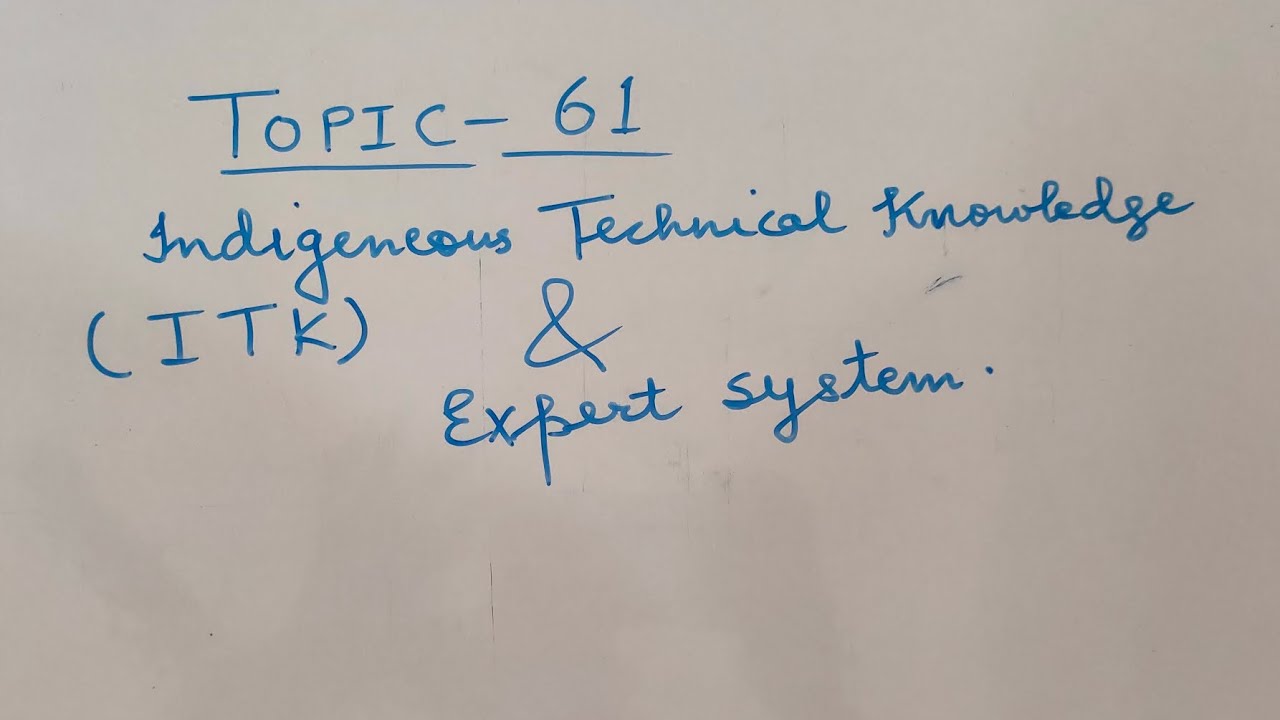 TOPIC- 61
Indigeneous Technical Knowledge
(ITK) &
Expert system.